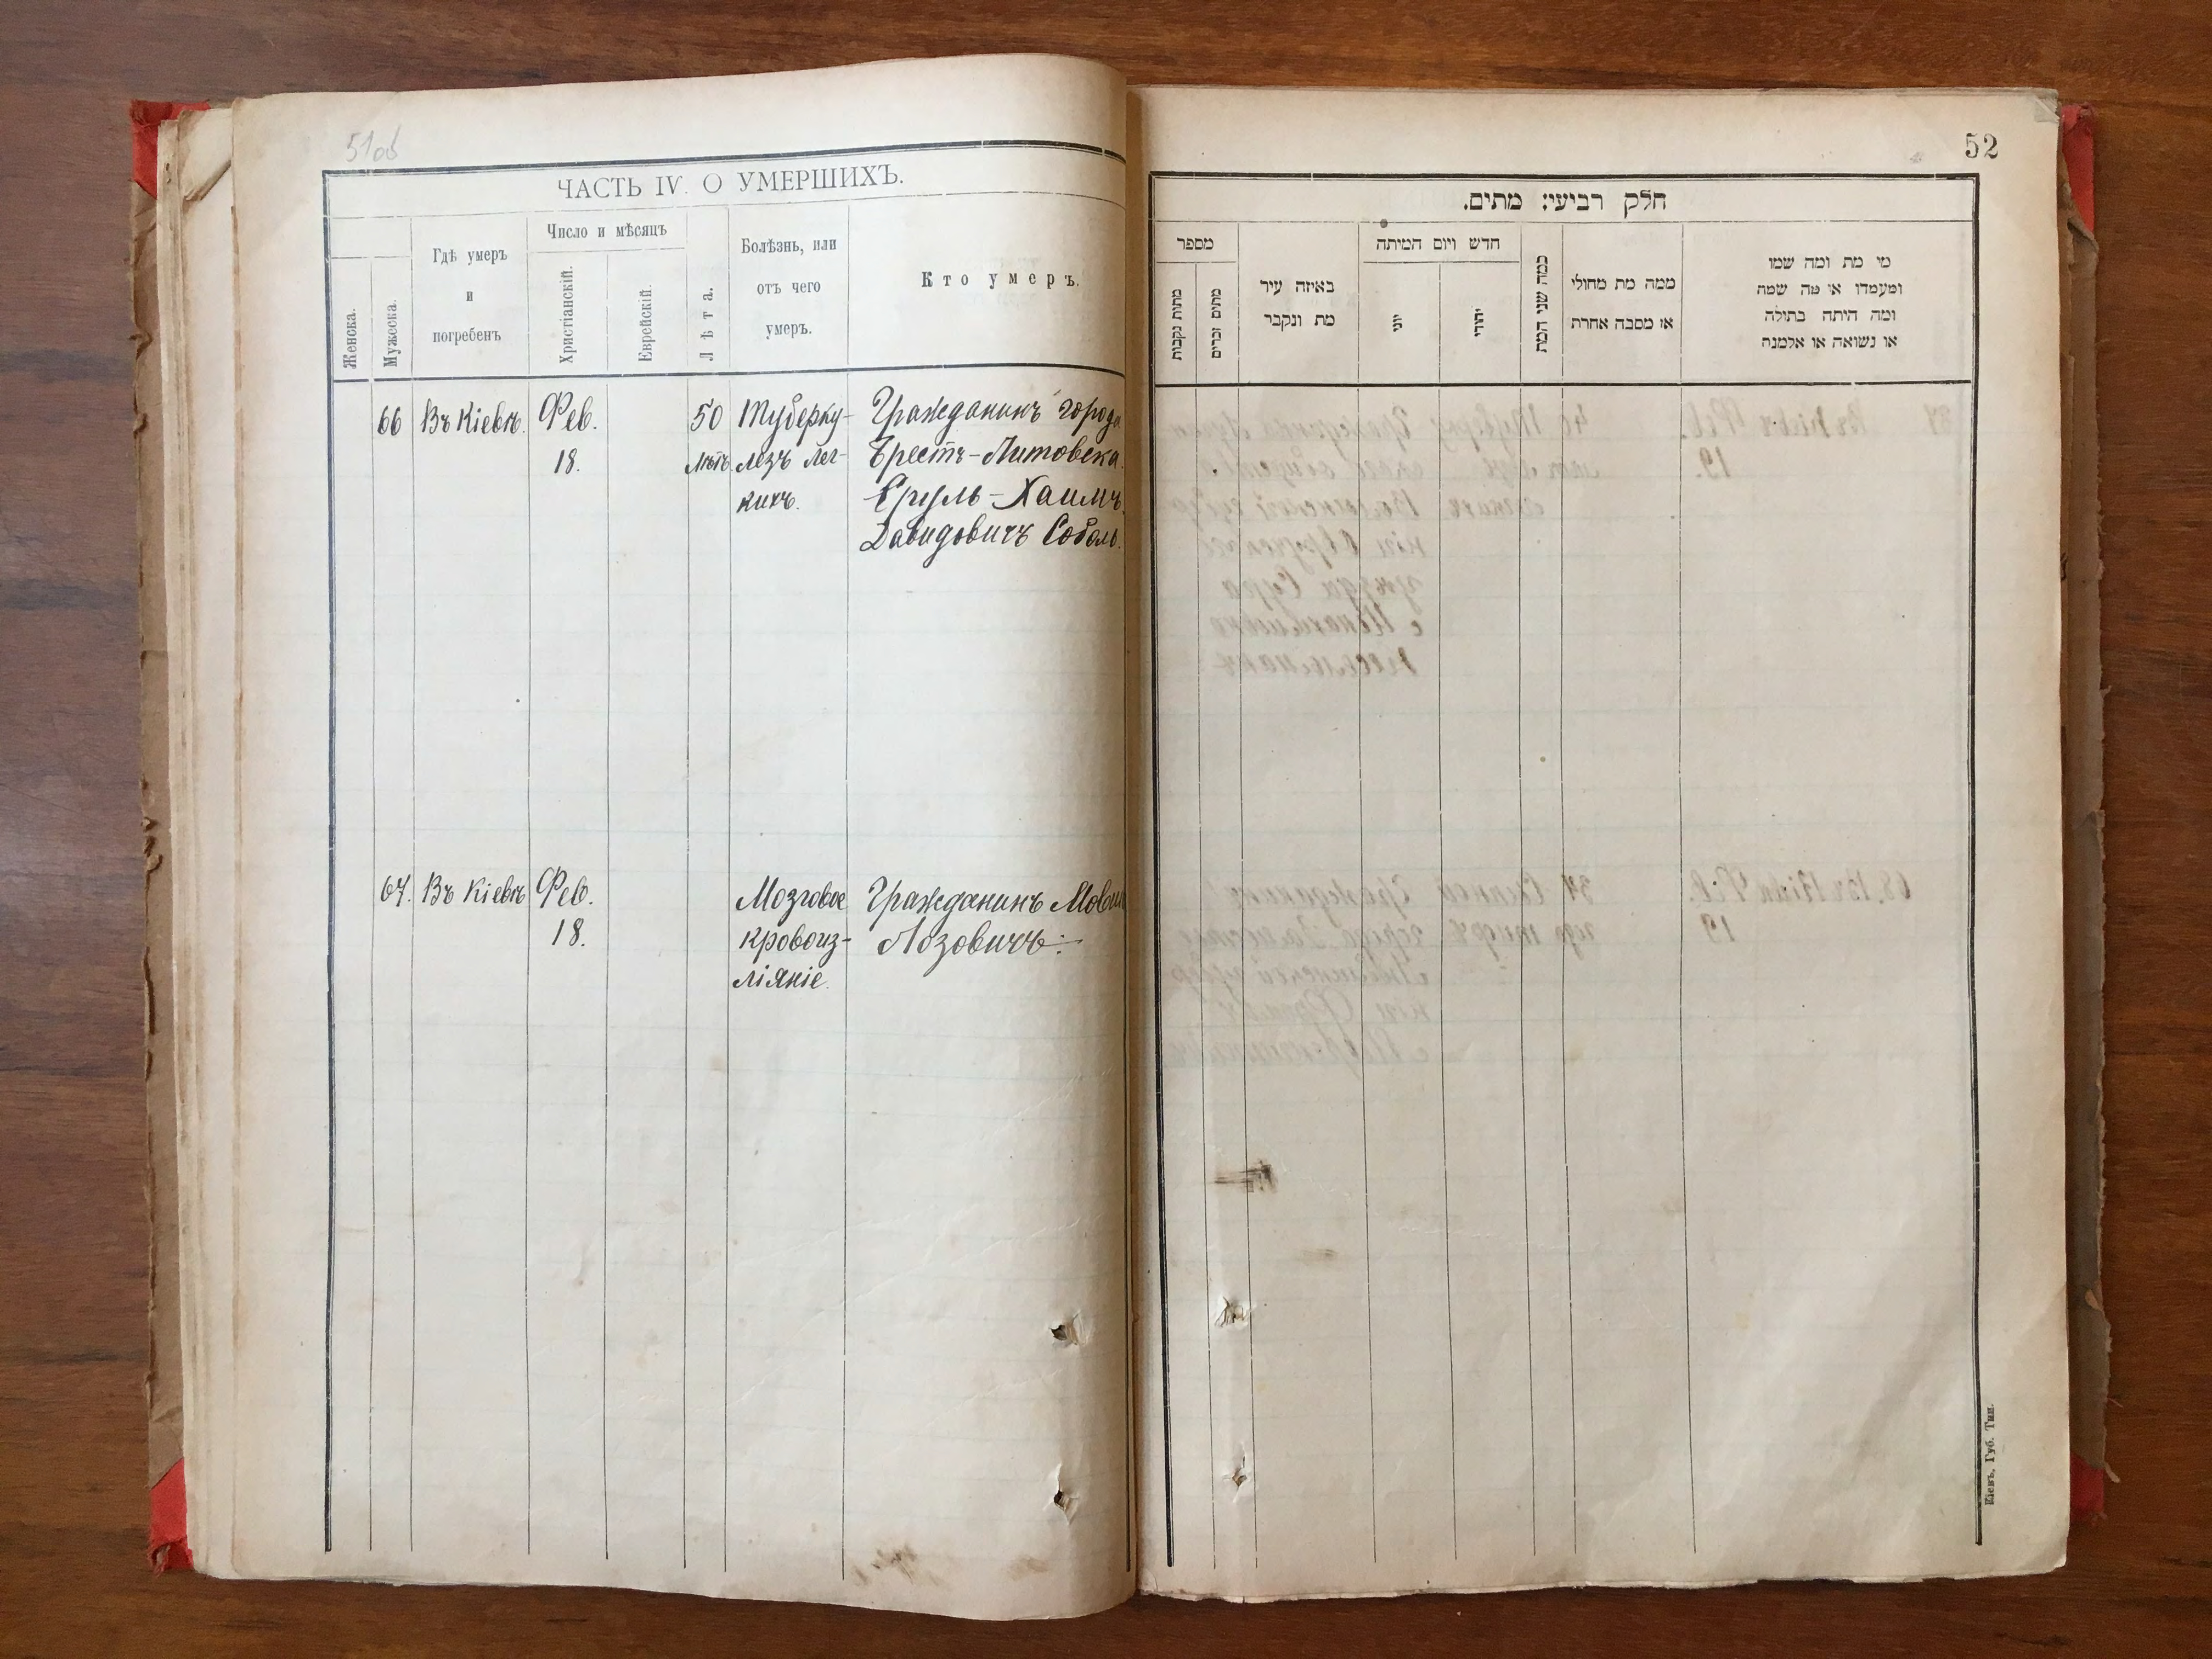 51об
ЧАСТЬ IV. О УМЕРШИХЪ.
Женска.
Мужеска.
Гдѣ умеръ
и
погребенъ
Число и мѣсяцъ
Христіанскій.
Еврейскій.
Лѣта.
Болѣзнь, или
отъ чего
умеръ.
Кто умеръ.
66 Въ Кіевѣ. Фев. 50 Туберку- Гражданинъ города
18. лѣтъ. лезъ лег- Брестъ-Литовска
кихъ. Сруль-Хаимъ
Давидовичъ Соболь.
67. Въ Кіевѣ Фев. Мозговое Гражданинъ Мовша
18. кровоиз- Лозовичъ
ліяніе.
52
חלק רביעי: מתים.
מספר
מתות נקבות
מתים זכרים
באיזה עיר
מת ונקבר
חדש ויום המיתה
יוני
יהודי
כמה שני המת
ממה מת מחולי
או מסבה אחרת
מי מת ומה שמו
ומעמדו או מה שמה
ומה היתה בתולה
או נשואה או אלמנה
Кіевъ, Губ. Тип.